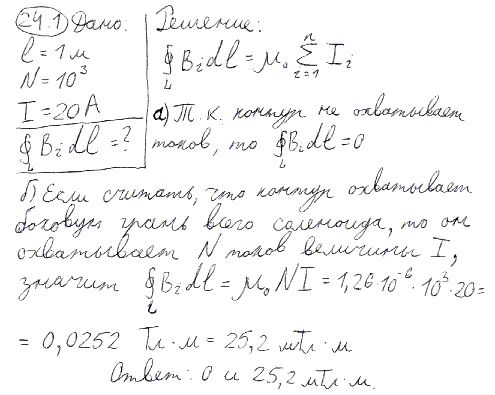 24.1 Дано: Решение:
l = 1 м
∮_L B_i dl = μ₀ Σ_{i=1}^{n} I_i
N = 10³
I = 20 А
∮_L B_i dl = ?
а) Т. к. контур не охватывает
токов, то ∮_L B_i dl = 0
б) Если считать, что контур охватывает
боковую грань всего соленоида, то он
охватывает N токов величины I,
значит ∮_L B_i dl = μ₀ N I = 1,26·10⁻⁶·10³·20=
= 0,0252 Тл·м = 25,2 мТл·м
Ответ: 0 и 25,2 мТл·м.